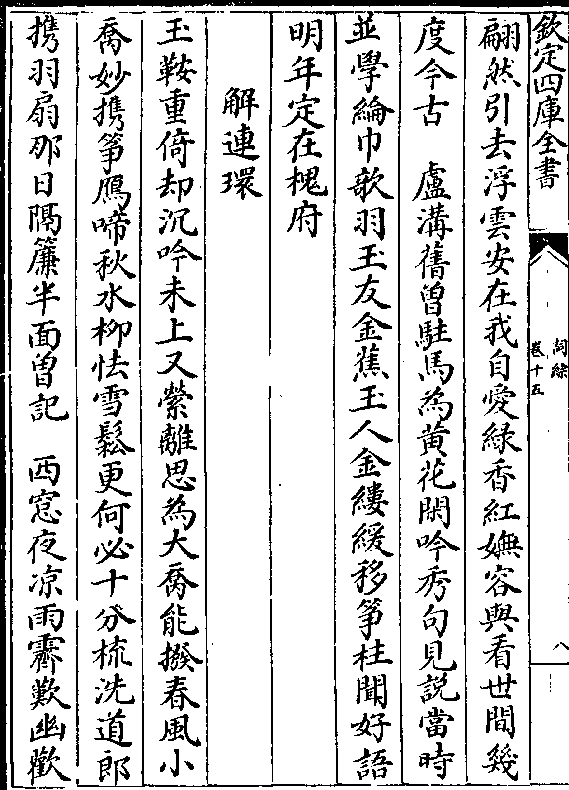 欽定四庫全書
詞綜
卷十五
八
翩然引去浮雲安在我自愛綠香紅嫵容與看世間幾
度今古　盧溝舊曾駐馬為黃花閑吟秀句見說當時
並學綸巾歌羽玉友金蕉玉人金縷緩移箏柱聞好語
明年定在槐府
解連環
玉鞍重倚却沉吟未上又縈離思為大喬能撥春風小
喬妙携箏鴈啼秋水柳怯雪鬆更何必十分梳洗道郎
携羽扇那日隔簾半面曾記　西窓夜凉雨霽歎幽歡